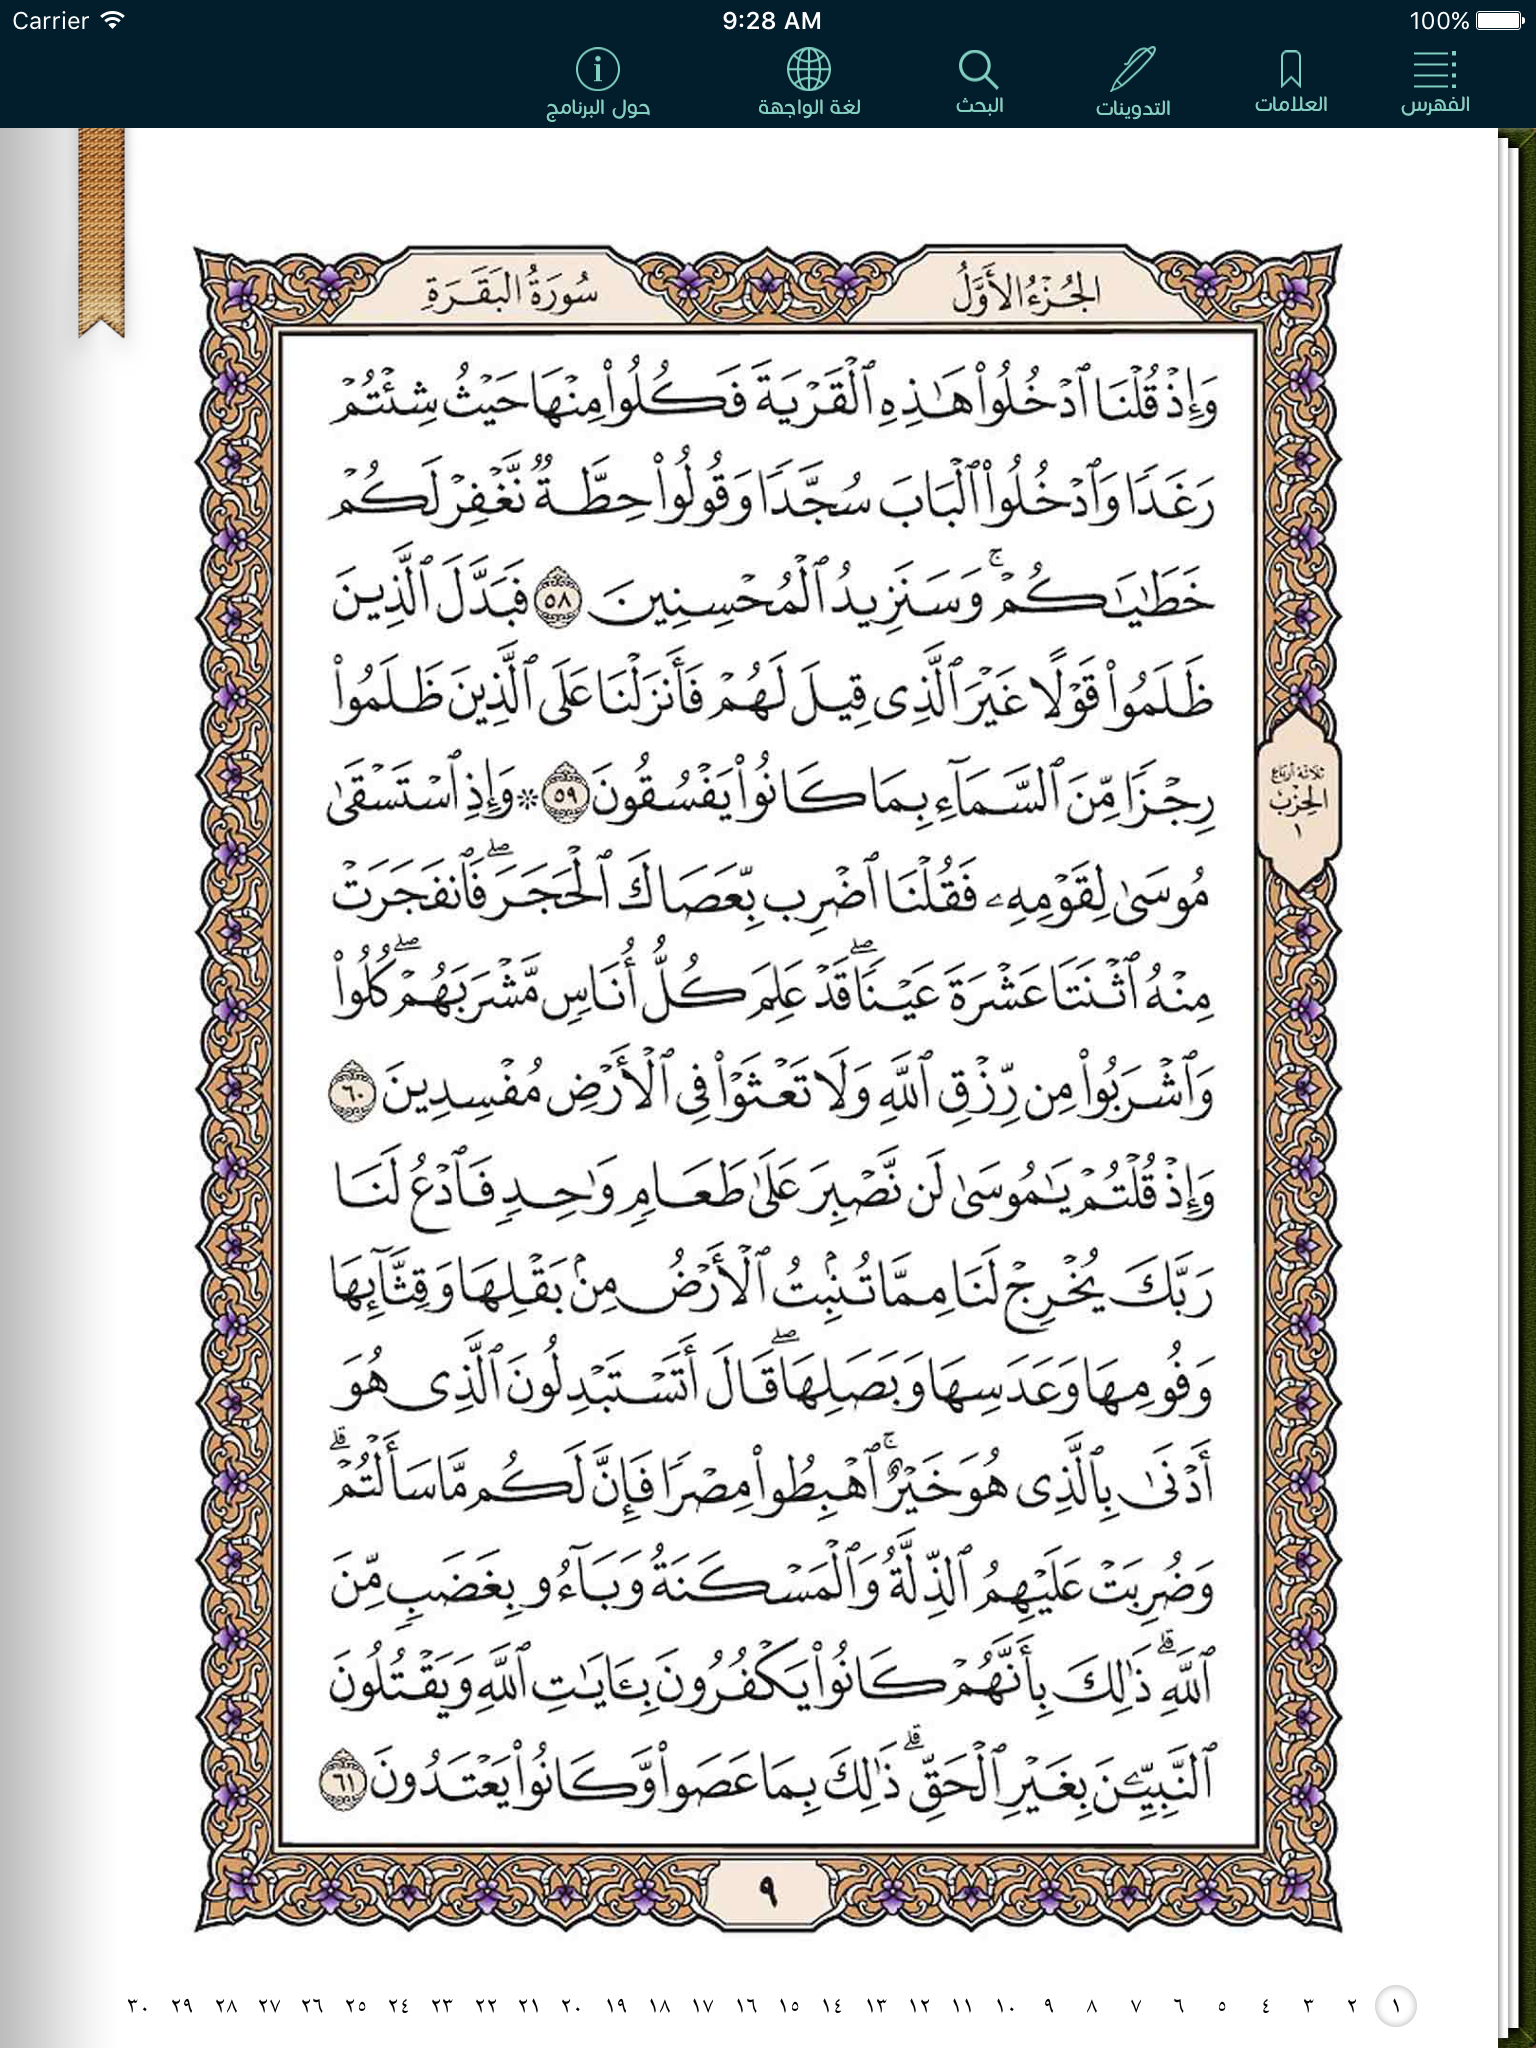 Carrier 9:28 AM 100%
الفهرس العلامات التدوينات البحث لغة الواجهة حول البرنامج
الجُزْءُ الأَوَّلُ سُورَةُ البَقَرَةِ
وَإِذْ قُلْنَا ٱدْخُلُوا۟ هَـٰذِهِ ٱلْقَرْيَةَ فَكُلُوا۟ مِنْهَا حَيْثُ شِئْتُمْ
رَغَدًا وَٱدْخُلُوا۟ ٱلْبَابَ سُجَّدًا وَقُولُوا۟ حِطَّةٌ نَّغْفِرْ لَكُمْ
خَطَـٰيَـٰكُمْ ۚ وَسَنَزِيدُ ٱلْمُحْسِنِينَ ٥٨ فَبَدَّلَ ٱلَّذِينَ
ظَلَمُوا۟ قَوْلًا غَيْرَ ٱلَّذِى قِيلَ لَهُمْ فَأَنزَلْنَا عَلَى ٱلَّذِينَ ظَلَمُوا۟
رِجْزًا مِّنَ ٱلسَّمَآءِ بِمَا كَانُوا۟ يَفْسُقُونَ ٥٩ * وَإِذِ ٱسْتَسْقَىٰ
ثلاثة أرباع
الحزب
١
مُوسَىٰ لِقَوْمِهِۦ فَقُلْنَا ٱضْرِب بِّعَصَاكَ ٱلْحَجَرَ ۖ فَٱنفَجَرَتْ
مِنْهُ ٱثْنَتَا عَشْرَةَ عَيْنًا ۖ قَدْ عَلِمَ كُلُّ أُنَاسٍ مَّشْرَبَهُمْ ۖ كُلُوا۟
وَٱشْرَبُوا۟ مِن رِّزْقِ ٱللَّهِ وَلَا تَعْثَوْا۟ فِى ٱلْأَرْضِ مُفْسِدِينَ ٦٠
وَإِذْ قُلْتُمْ يَـٰمُوسَىٰ لَن نَّصْبِرَ عَلَىٰ طَعَامٍ وَٰحِدٍ فَٱدْعُ لَنَا
رَبَّكَ يُخْرِجْ لَنَا مِمَّا تُنۢبِتُ ٱلْأَرْضُ مِنۢ بَقْلِهَا وَقِثَّآئِهَا
وَفُومِهَا وَعَدَسِهَا وَبَصَلِهَا ۖ قَالَ أَتَسْتَبْدِلُونَ ٱلَّذِى هُوَ
أَدْنَىٰ بِٱلَّذِى هُوَ خَيْرٌ ۚ ٱهْبِطُوا۟ مِصْرًا فَإِنَّ لَكُم مَّا سَأَلْتُمْ ۗ
وَضُرِبَتْ عَلَيْهِمُ ٱلذِّلَّةُ وَٱلْمَسْكَنَةُ وَبَآءُو بِغَضَبٍ مِّنَ
ٱللَّهِ ۗ ذَٰلِكَ بِأَنَّهُمْ كَانُوا۟ يَكْفُرُونَ بِـَٔايَـٰتِ ٱللَّهِ وَيَقْتُلُونَ
ٱلنَّبِيِّـۧنَ بِغَيْرِ ٱلْحَقِّ ۗ ذَٰلِكَ بِمَا عَصَوا۟ وَّكَانُوا۟ يَعْتَدُونَ ٦١
٩
١ ٢ ٣ ٤ ٥ ٦ ٧ ٨ ٩ ١٠ ١١ ١٢ ١٣ ١٤ ١٥ ١٦ ١٧ ١٨ ١٩ ٢٠ ٢١ ٢٢ ٢٣ ٢٤ ٢٥ ٢٦ ٢٧ ٢٨ ٢٩ ٣٠